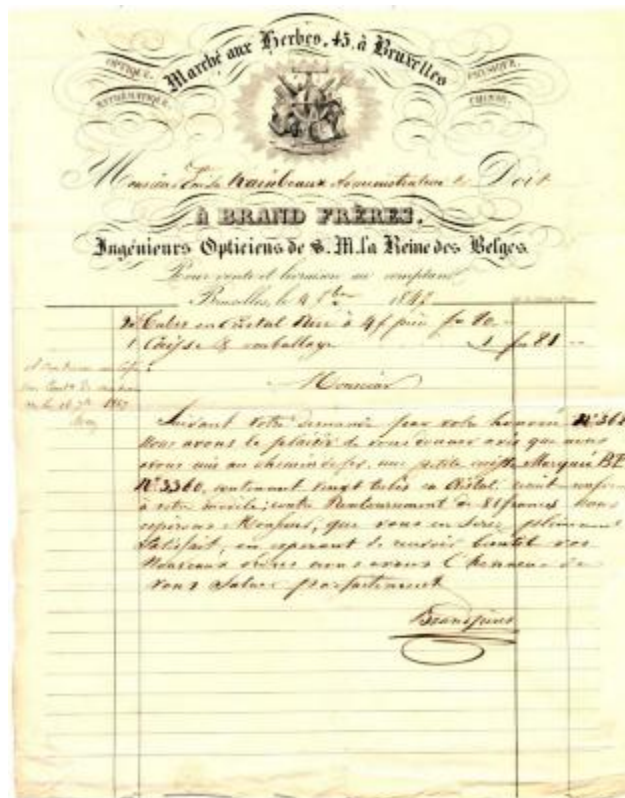 Marché aux Herbes, 45, à Bruxelles
OPTIQUE.
PHYSIQUE.
MATHÉMATIQUE.
CHIMIE.
Monsieur Rainbeaux Administrateur Doit
À BRAND FRÈRES,
Ingénieurs Opticiens de S. M. la Reine des Belges.
Pour vente et livraison au comptant
Bruxelles, le 4 184
20 Tubes en Cristal à 4 f pièce fr 80
1 Caisse & emballage 1 fr 81
Monsieur
Suivant votre demande par votre honoré
Nous avons le plaisir de vous donner avis que nous
avons mis au chemin de fer, une petite caisse Marquée BF
N° 3360, contenant vingt tubes en Cristal
à votre modèle, contre Remboursement de 81 francs Nous
espérons Monsieur, que vous en serez pleinement
Satisfait, en espérant de recevoir bientôt vos
Nouveaux ordres nous avons l'honneur de
vous saluer parfaitement
Brand frères